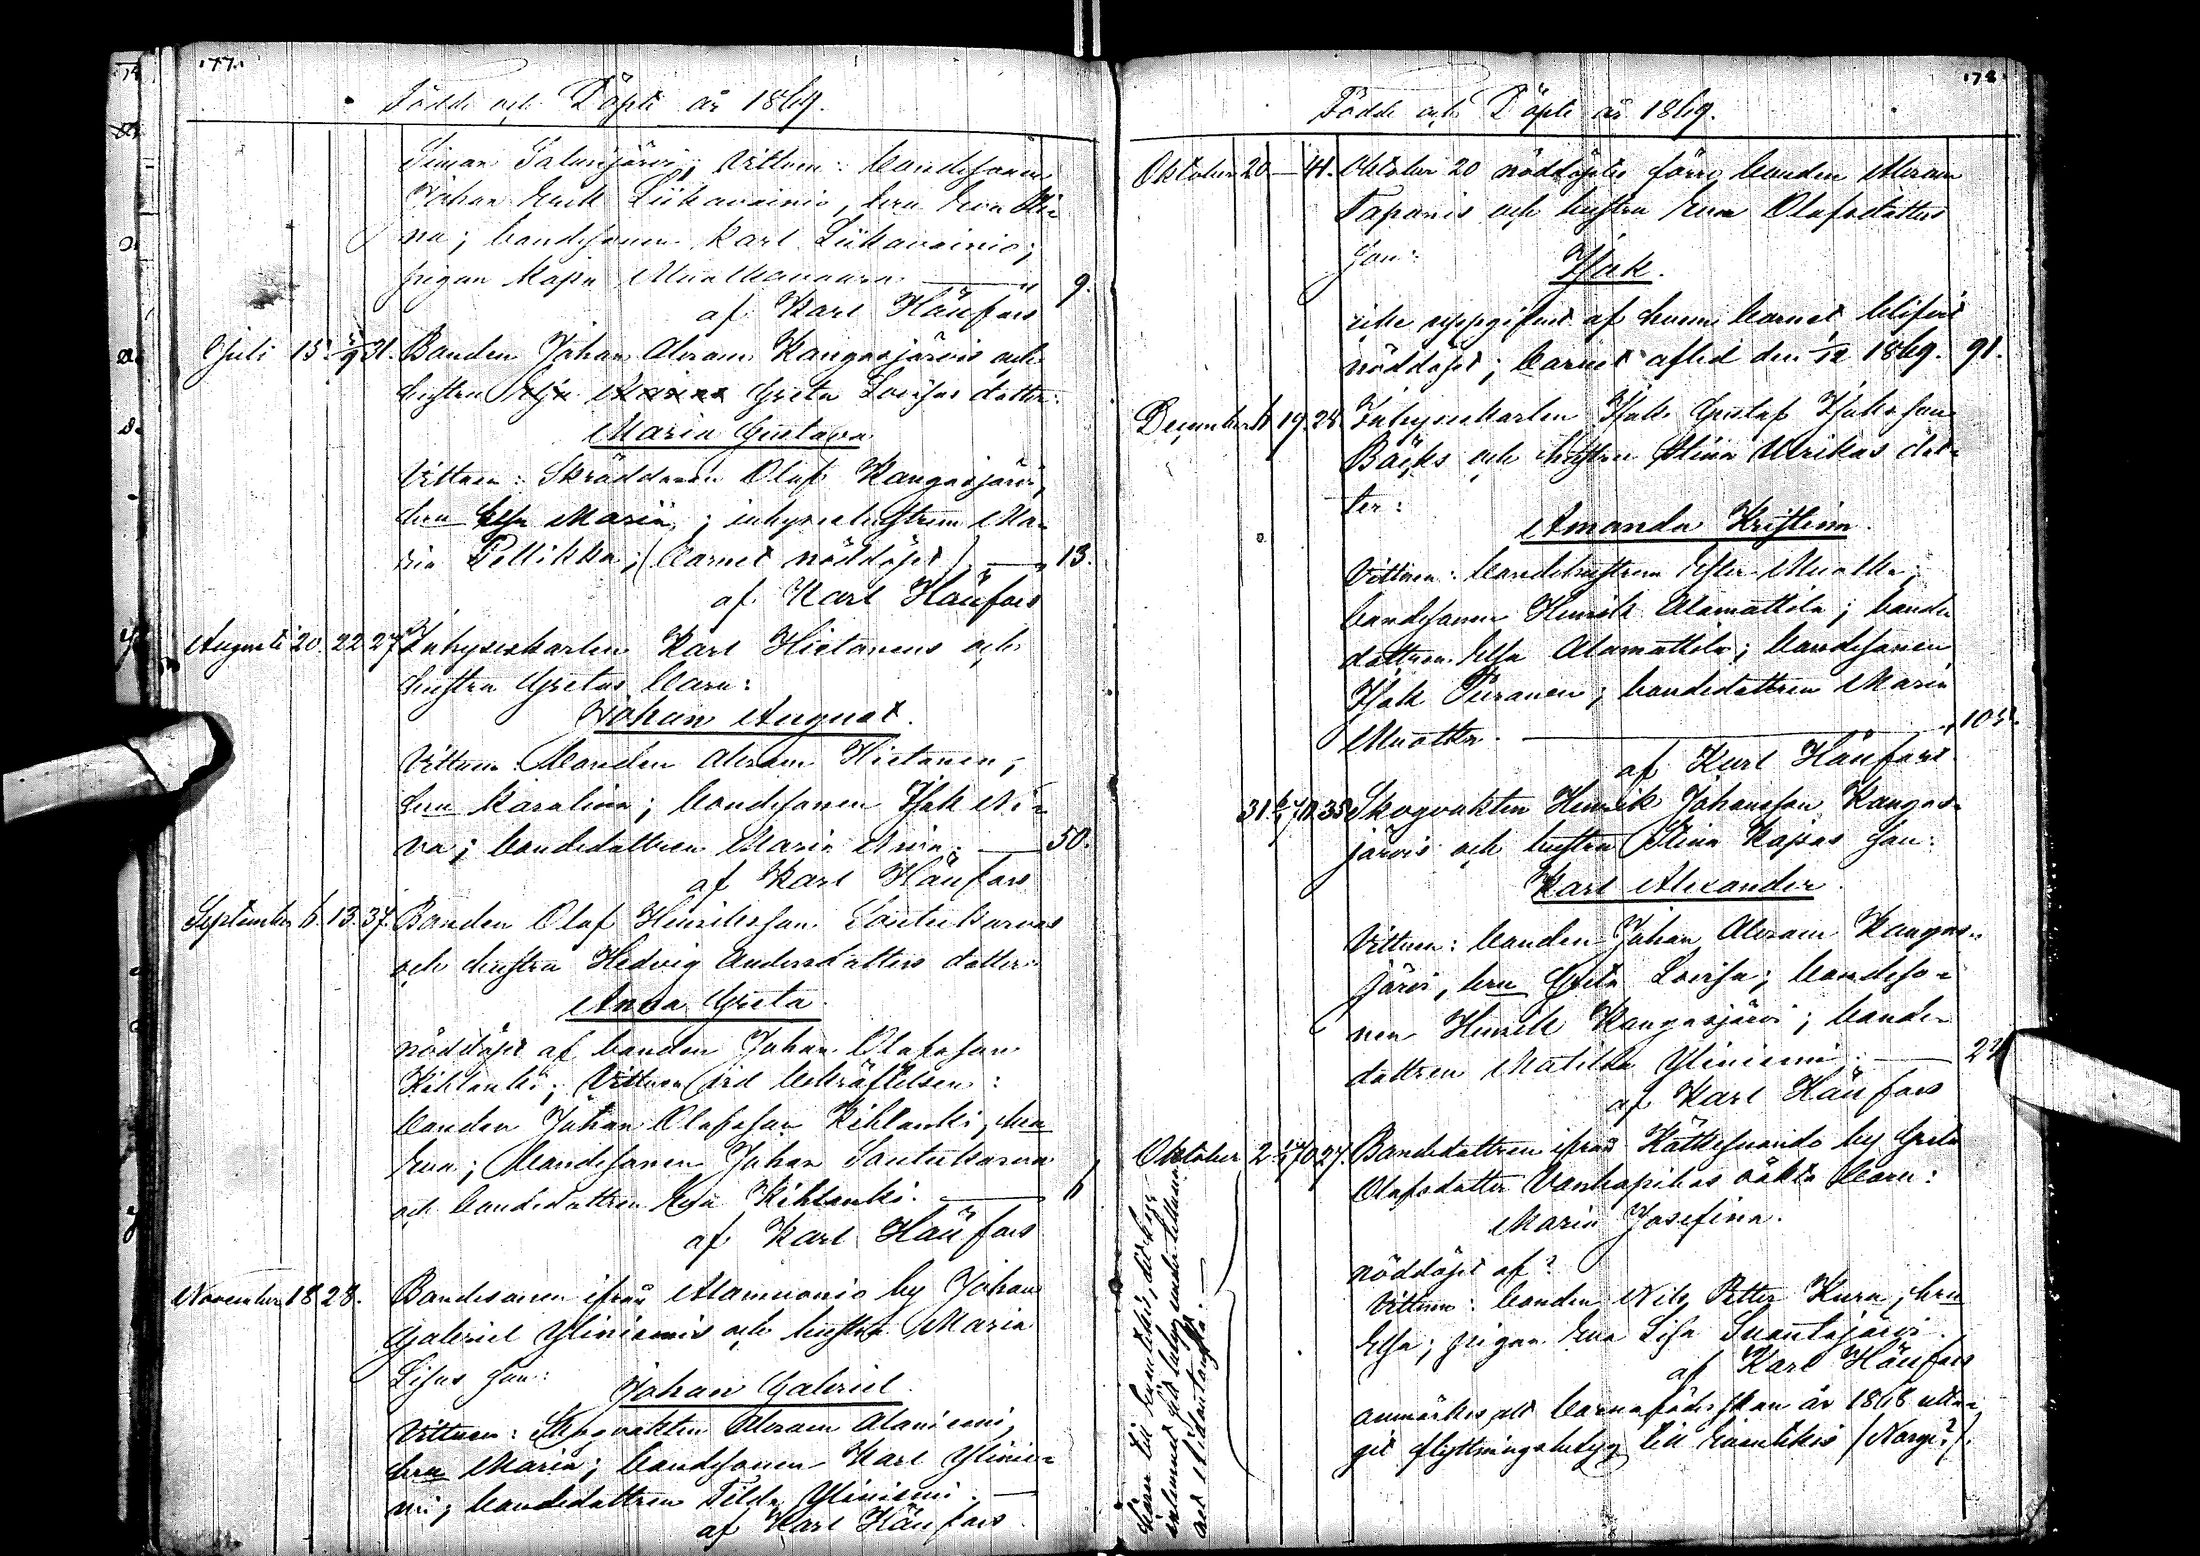 177.
Födde och Döpte år 1869.
Simon Salmijärvi; Vittnen: bondesonen
Johan Erik Liikavainio, hru Eva Sti-
na; bondesonen Karl Liikavainio;
pigan Kajsa 9.
af Karl Hänfors
Juli 15 31. Bonden Johan Abram Kangosjärvis och
hustru Greta Lovisas dotter:
Maria Gustava
Vittnen: Skräddaren Olof Kangosjärvi,
hru Elsa Maria; inhyseshustrun Ma-
ria Pellikka; (barnet nöddöpt) 13.
af Karl Hänfors
Augusti 20. 22 27 Inhyseskarlen Karl Hietanens och
hustru Gretas barn:
Johan August.
Vittnen: bonden Abram Hietanen,
hru Karolina; bondesonen Isak Ni-
va; bondedottren Maria Niva. 50.
af Karl Hänfors
September 6. 13. 37. Bonden Olof Henriksson
och hustru Hedvig Andersdotters dotter:
Anna Greta.
nöddöpt af bonden Johan Olofsson
Kihlanki; Vittnen vid bekräftelsen:
bonden Johan Olofsson Kihlanki, hru
Eva; bondesonen Johan
och bondedottren Eva Kihlanki. 6
af Karl Hänfors
November 18 28. Bondesonen ifrån Alamuonio by Johan
Gabriel Yliniemis och hustru Maria
Lisas son:
Johan Gabriel.
Vittnen: Skogvakten Abram Alaniemi,
hru Maria; bondesonen Karl Ylinie-
mi; bondedottren Tilda Yliniemi.
af Karl Hänfors
178
Födde och Döpte år 1869.
Oktober 20 — 41. Oktober 20 nöddöptes förre bonden Abram
Tapanis och hustru Eva Olofsdotters
son:
Isak.
icke uppgifvet af hvem barnet blifvit
nöddöpt; barnet afled den 1/12 1869. 91.
December 6 19. 24. Inhyseskarlen Isak Gustaf Isaksson
Bäcks och hustru Stina Ulrikas dot-
ter:
Amanda Kristina.
Vittnen: bondehustrun Ester Muotka;
bondesonen Henrik Alamattila; bonde
dottren Elsa Alamattila; bondesonen
Isak Piiranen; bondedottren Maria
Muotka.
af Karl Hänfors
31 Skogvakten Henrik Johansson Kangos-
järvis och hustru Stina Kajsas son:
Karl Alexander.
Vittnen: bonden Johan Abram Kangos-
järvi, hru Greta Lovisa; bondeso-
nen Henrik Kangosjärvi; bonde-
dottren Matilda Yliniemi.
af Karl Hänfors
Oktober 2 27. Bondedottren ifrån Kätkesuando by Greta
Olofsdotter Vanhapihas oäkta barn:
Maria Josefina.
nöddöpt af?
Vittnen: bonden Nils Petter Kura, hru
Elsa; pigan Eva Lisa Suontajärvi.
af Karl Hänfors
anmärkes att barnaföderskan år 1868 utta-
git flyttningsbetyg till (Norge?).